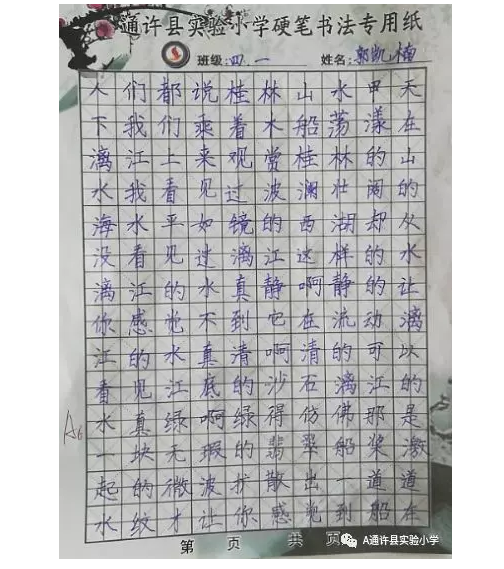 通许县实验小学硬笔书法专用纸
班级:四.一 姓名:郭凯楠
人们都说桂林山水甲天
下我们乘着木船荡漾在
漓江上来观赏桂林的山
水我看见过波澜壮阔的
海水平如镜的西湖却从
没看见过漓江这样的水
漓江的水真静啊静的让
你感觉不到它在流动漓
江的水真清啊清的可以
看见江底的沙石漓江的
水真绿啊绿得仿佛那是
一块无瑕的翡翠船桨激
起的微波扩散出一道道
水纹才让你感觉到船在
A6
第 页 共 页
A通许县实验小学